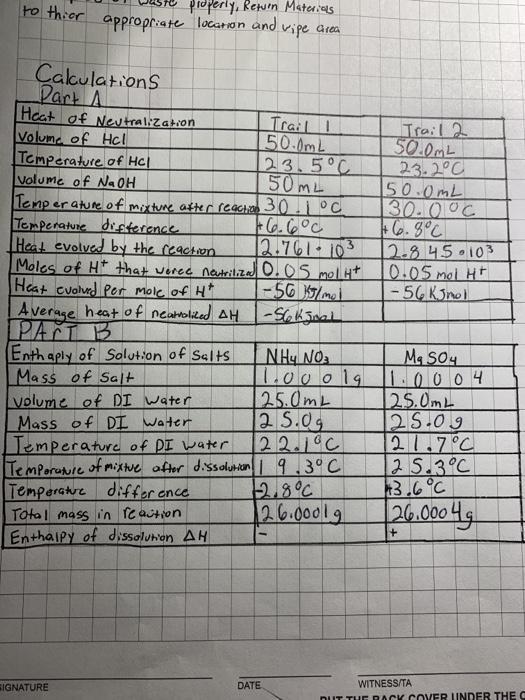 waste properly, Return Materials
to thier appropriate location and vipe area
Calculations
Part A
Heat of Neutralization Trail 1 Trail 2
Volume of Hcl 50.0mL 50.0mL
Temperature of Hcl 23.5°C 23.2°C
Volume of NaOH 50mL 50.0mL
Temperature of mixture after reaction 30.1°C 30.0°C
Temperature difference +6.6°C +6.8°C
Heat evolved by the reaction 2.761·10³ 2.845·10³
Moles of H+ that were neutrilized 0.05 mol H+ 0.05 mol H+
Heat evolved per mole of H+ -56 KJ/mol -56KJmol
Average heat of neatrolized ΔH -56KJmol
PART B
Enthaply of Solution of Salts NH4 NO3 Mg SO4
Mass of Salt 1.0001g 1.0004
volume of DI water 25.0mL 25.0mL
Mass of DI water 25.0g 25.0g
Temperature of DI water 22.1°C 21.7°C
Temperature of mixtue after dissolution 19.3°C 25.3°C
Temperatre difference -2.8°C +3.6°C
Total mass in reaction 26.0001g 26.0004g
Enthalpy of dissolution ΔH - +
SIGNATURE DATE WITNESS/TA
PUT THE BACK COVER UNDER THE